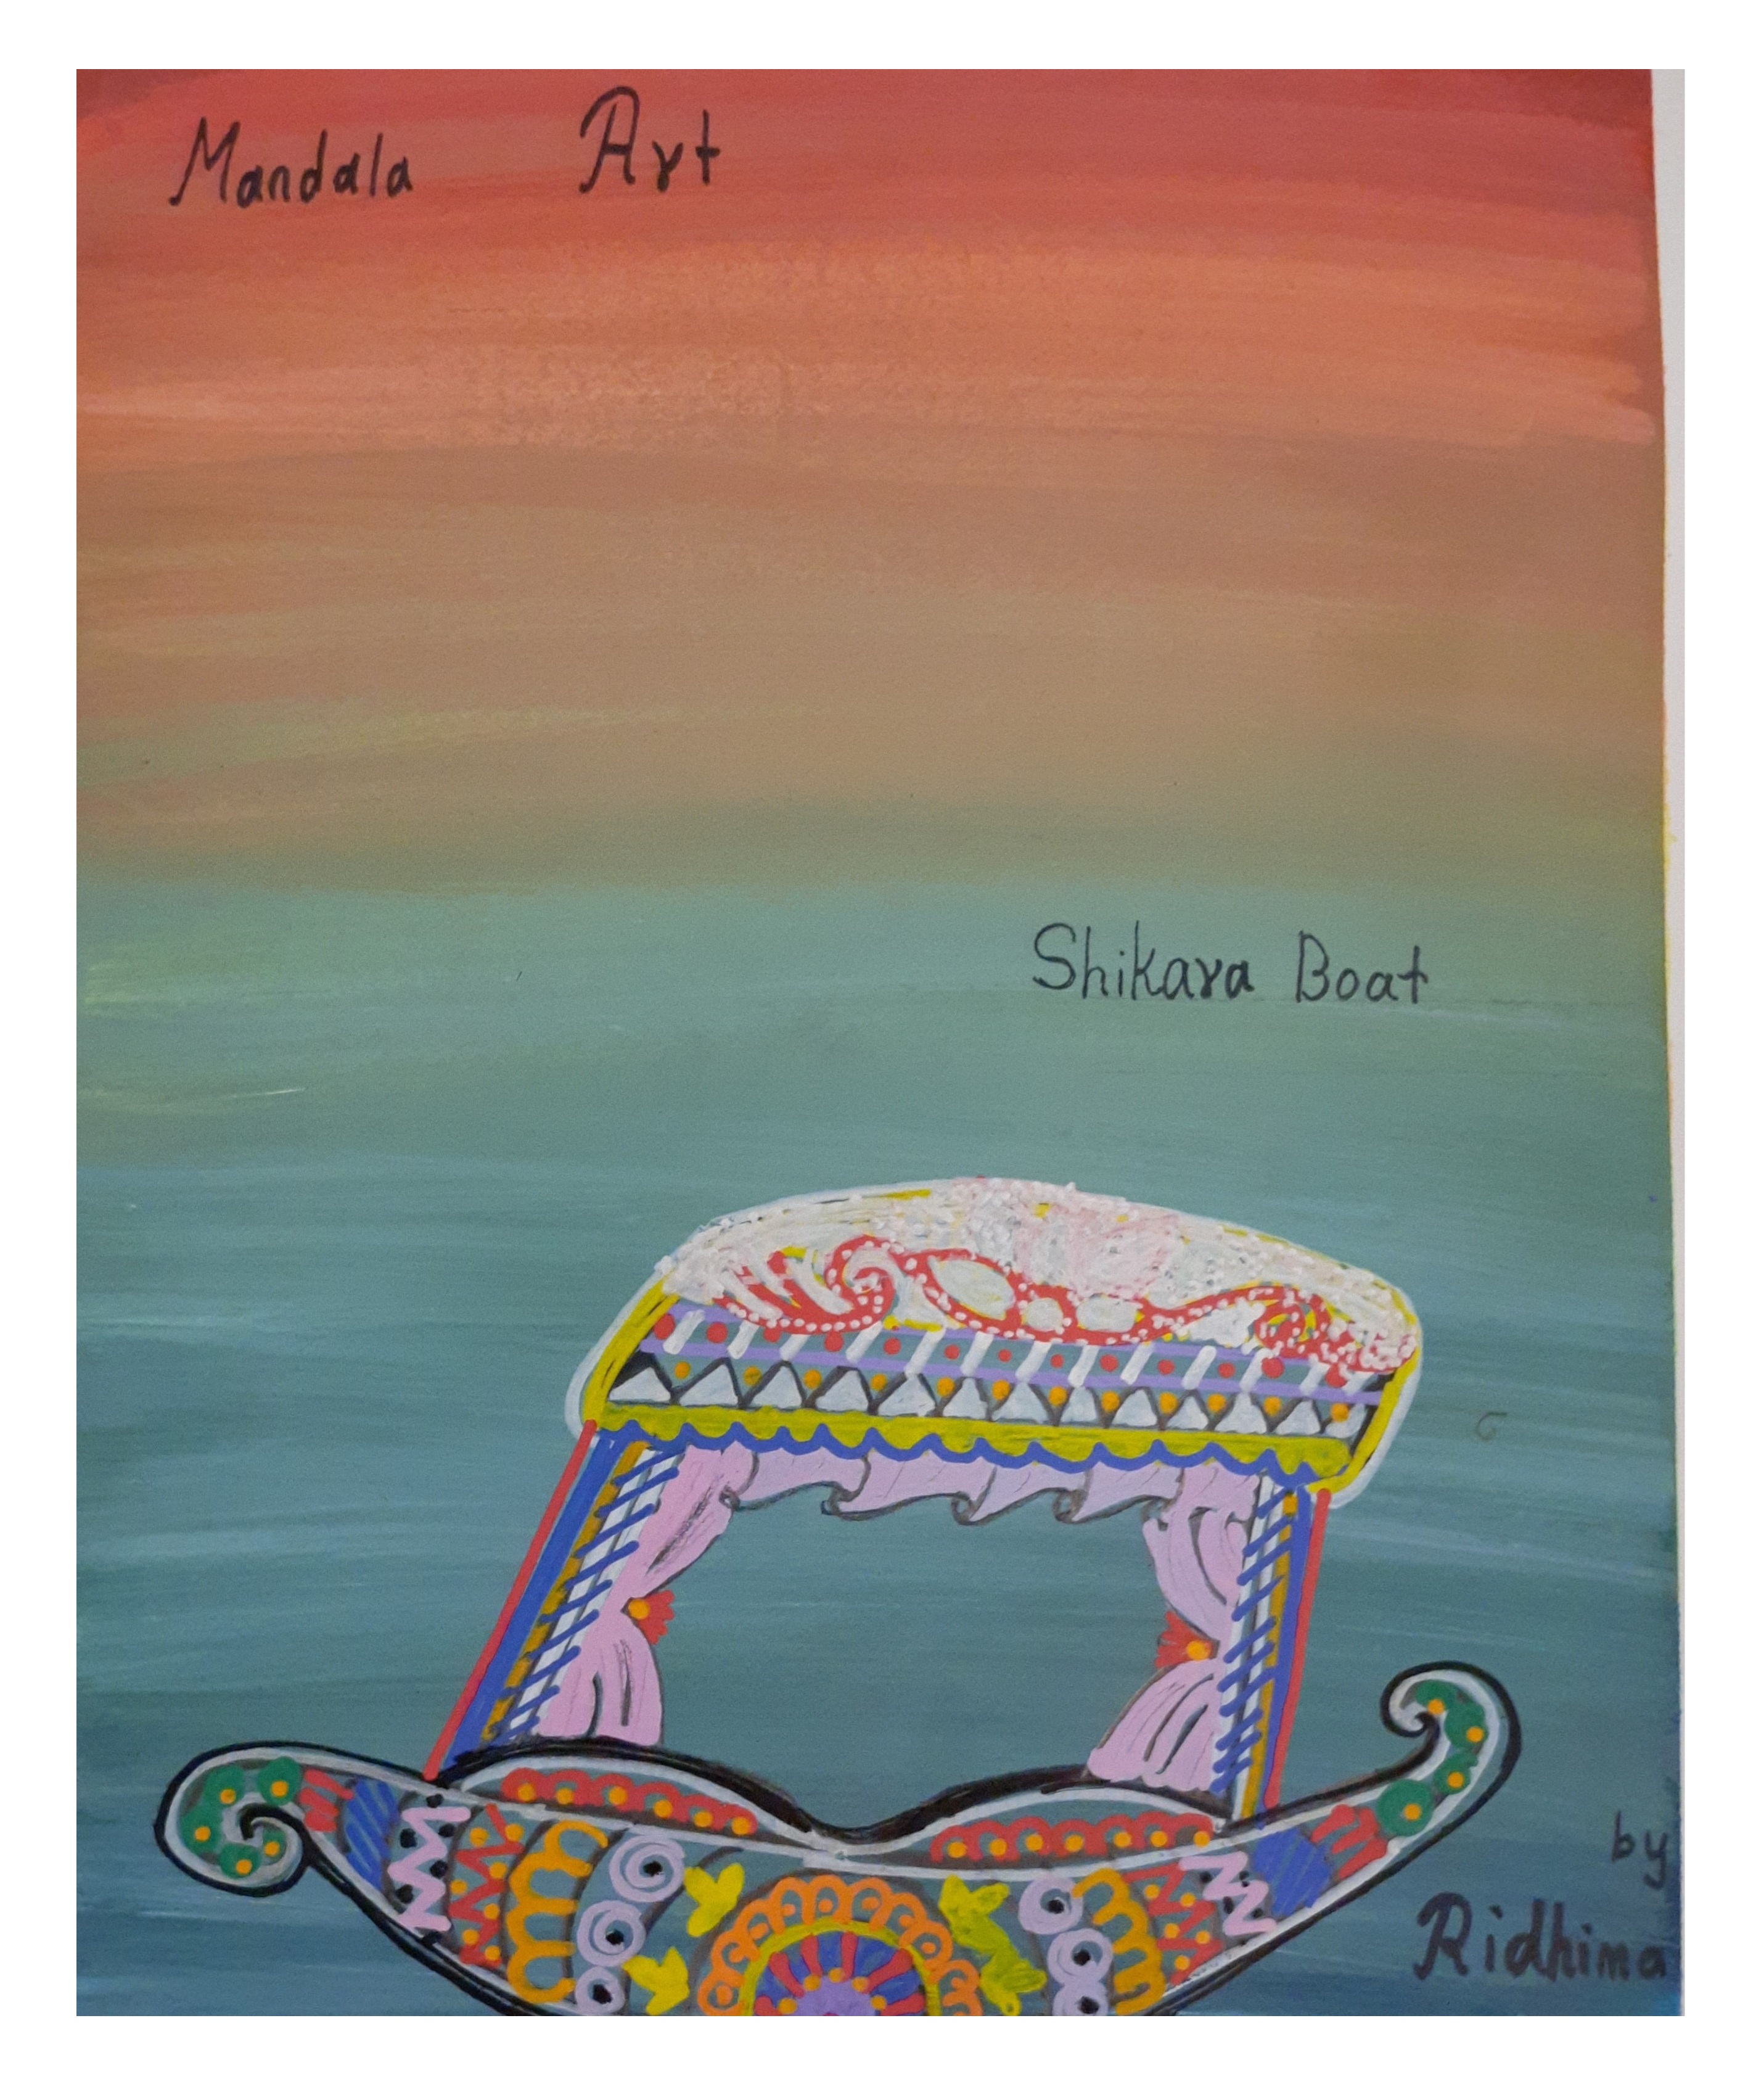 Mandala Art
Shikara Boat
by
Ridhima